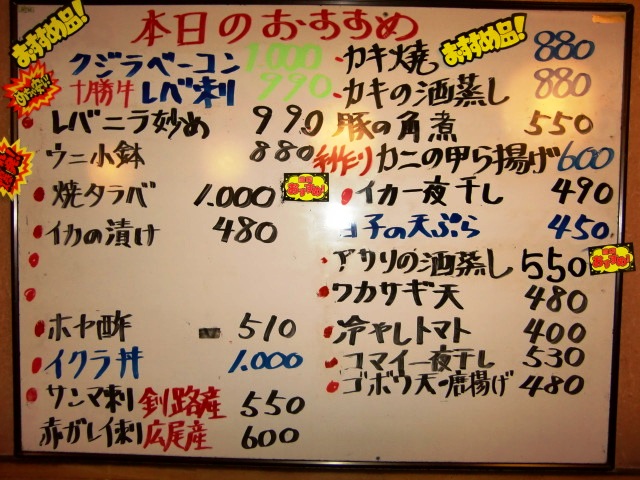 本日のおすすめ
おすすめ品!
クジラベーコン 1.000
十勝牛 レバ刺 990
レバニラ炒め 990
ウニ小鉢 880
焼タラバ 1.000
イカの漬け 480
ホヤ酢 510
イクラ丼 1.000
サンマ刺 釧路産 550
赤ガレイ刺 広尾産 600
カキ焼 おすすめ品! 880
カキの酒蒸し 880
豚の角煮 550
手作り カニの甲ら揚げ 600
イカ一夜干し 490
子の天ぷら 450
アサリの酒蒸し 550
ワカサギ天 480
冷やしトマト 400
コマイ一夜干し 530
ゴボウ天・唐揚げ 480